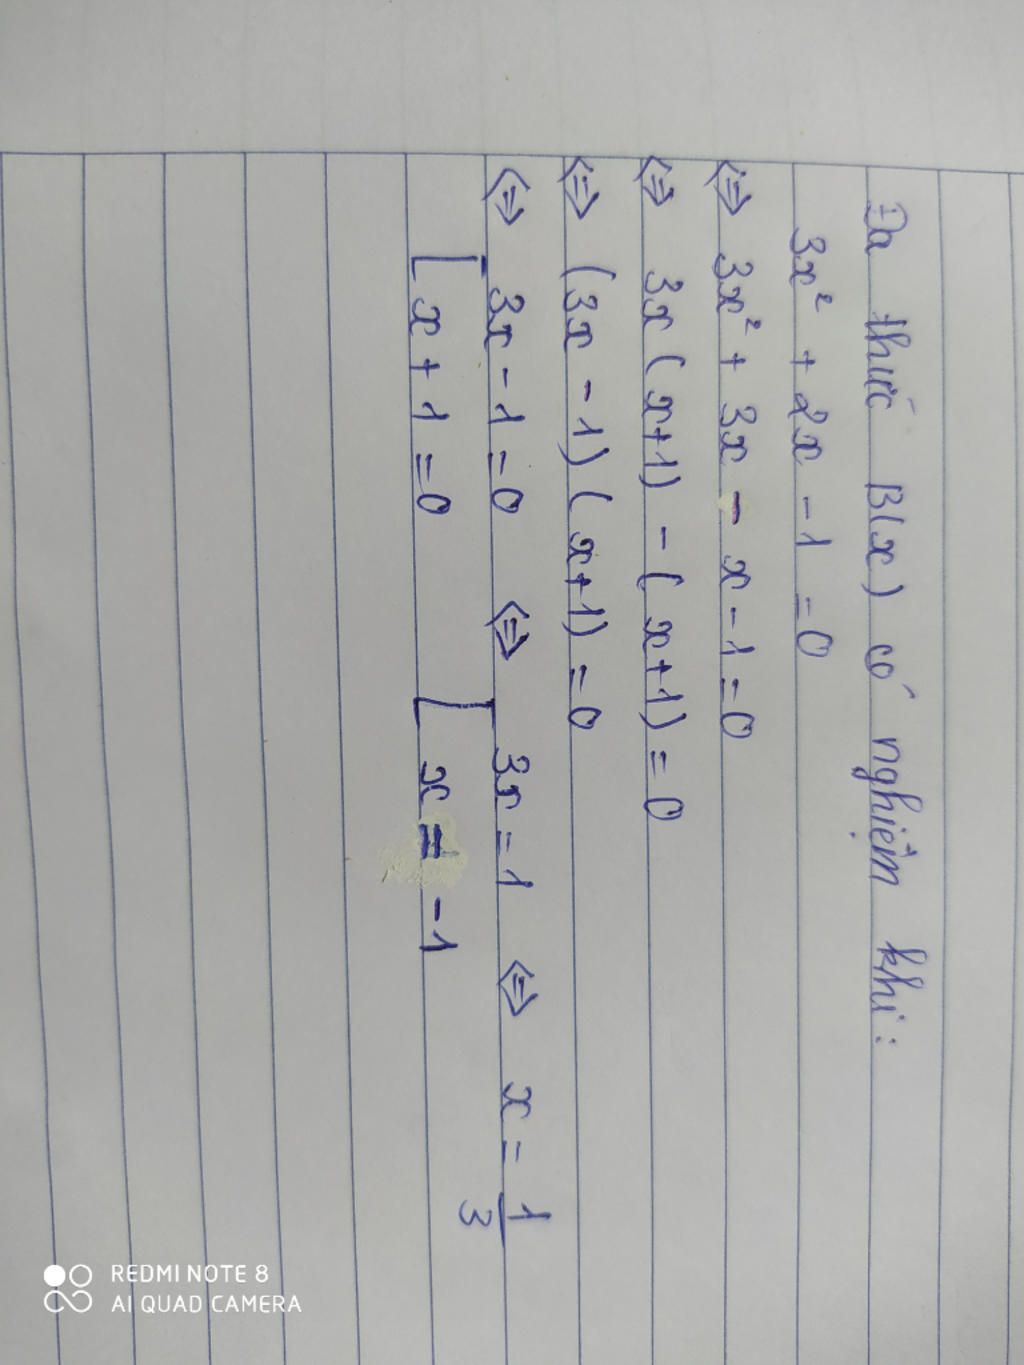 Đa thức B(x) có nghiệm khi:
3x² + 2x - 1 = 0
⇔ 3x² + 3x - x - 1 = 0
⇔ 3x (x+1) - (x+1) = 0
⇔ (3x - 1) (x+1) = 0
⇔ [ 3x - 1 = 0 ⇔ [ 3x = 1 ⇔ x = 1/3
x + 1 = 0 x = -1
REDMI NOTE 8
AI QUAD CAMERA